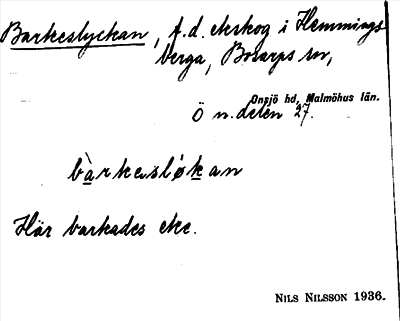 Barkeslyckan, f.d. ekskog i Hemmings
berga, Bosarps sn,
Onsjö hd, Malmöhus län.
Ö n. delen 27.
bàrkeslökan
Här barkades eke.
NILS NILSSON 1936.